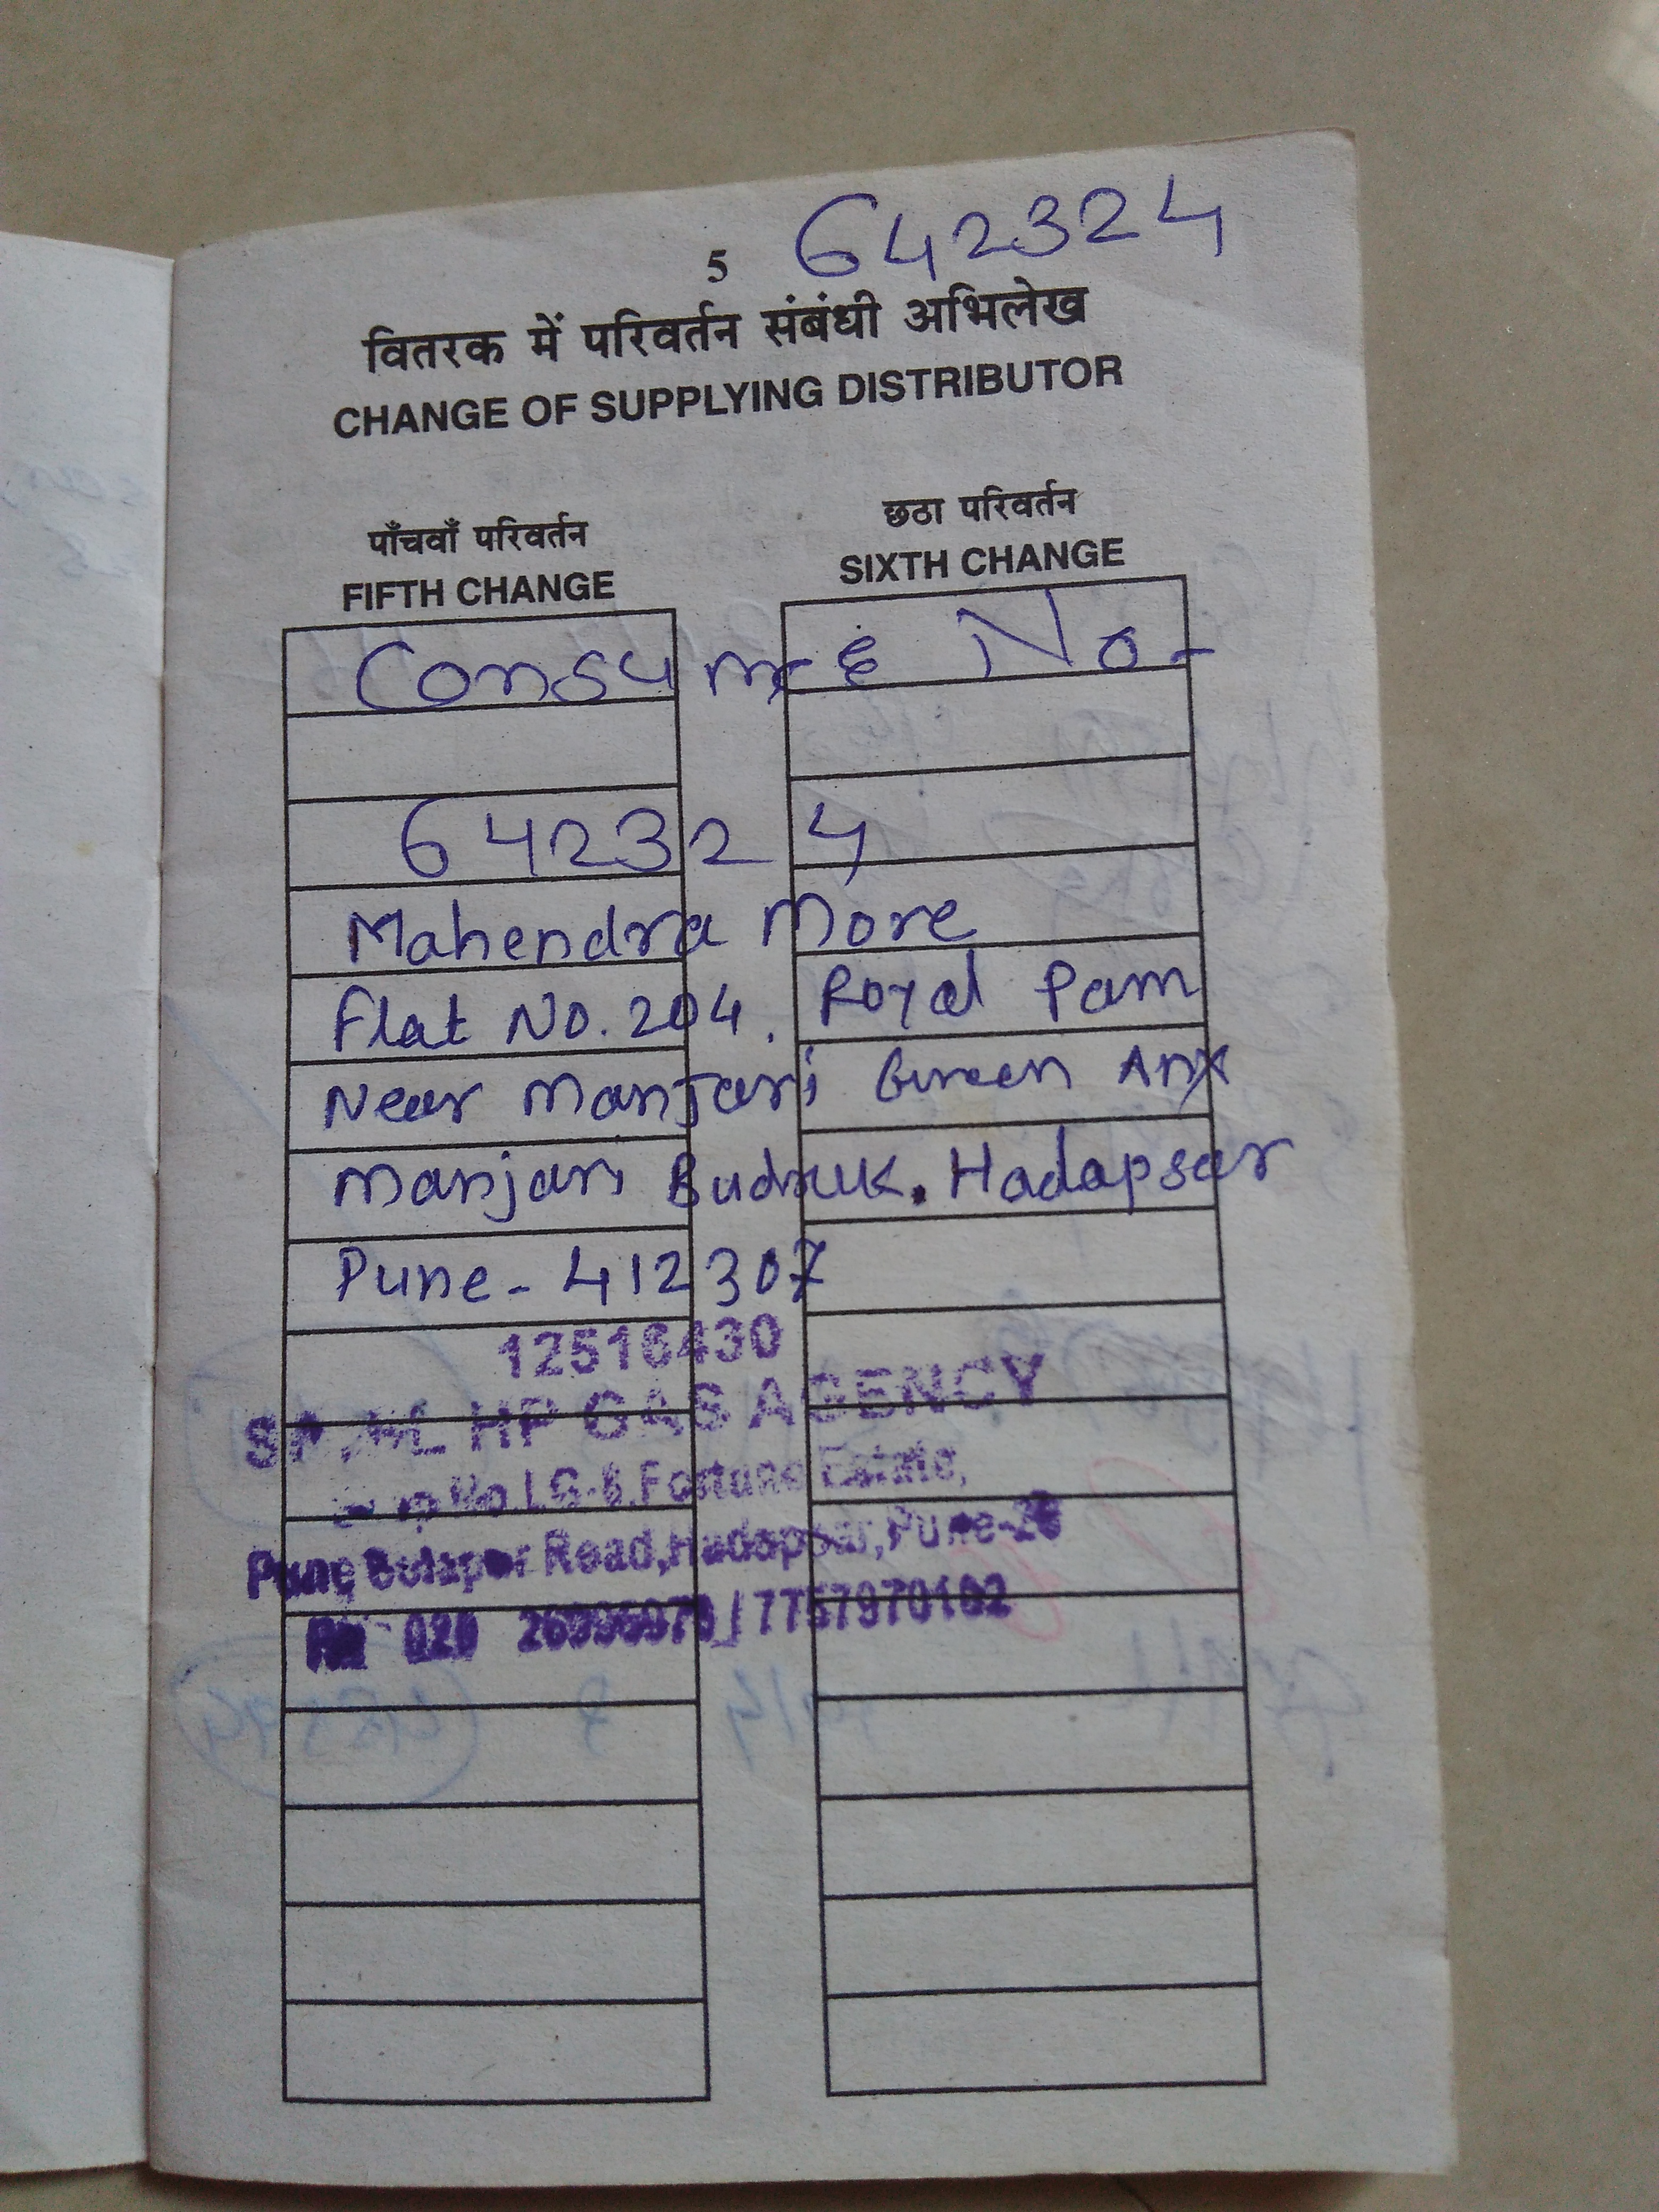 5 642324
वितरक में परिवर्तन संबंधी अभिलेख
CHANGE OF SUPPLYING DISTRIBUTOR
पाँचवाँ परिवर्तन
FIFTH CHANGE
छठा परिवर्तन
SIXTH CHANGE
Consume No.
642324
Mahendra More
Flat No. 204. Royal Pam
Near Manjari Green Anx
Manjari Budruk. Hadapsar
Pune - 412307
12516430
HP GAS AGENCY
No LG-8, Fortune Estate,
Road, Hadapsar, Pune-28
020 / 7757970102